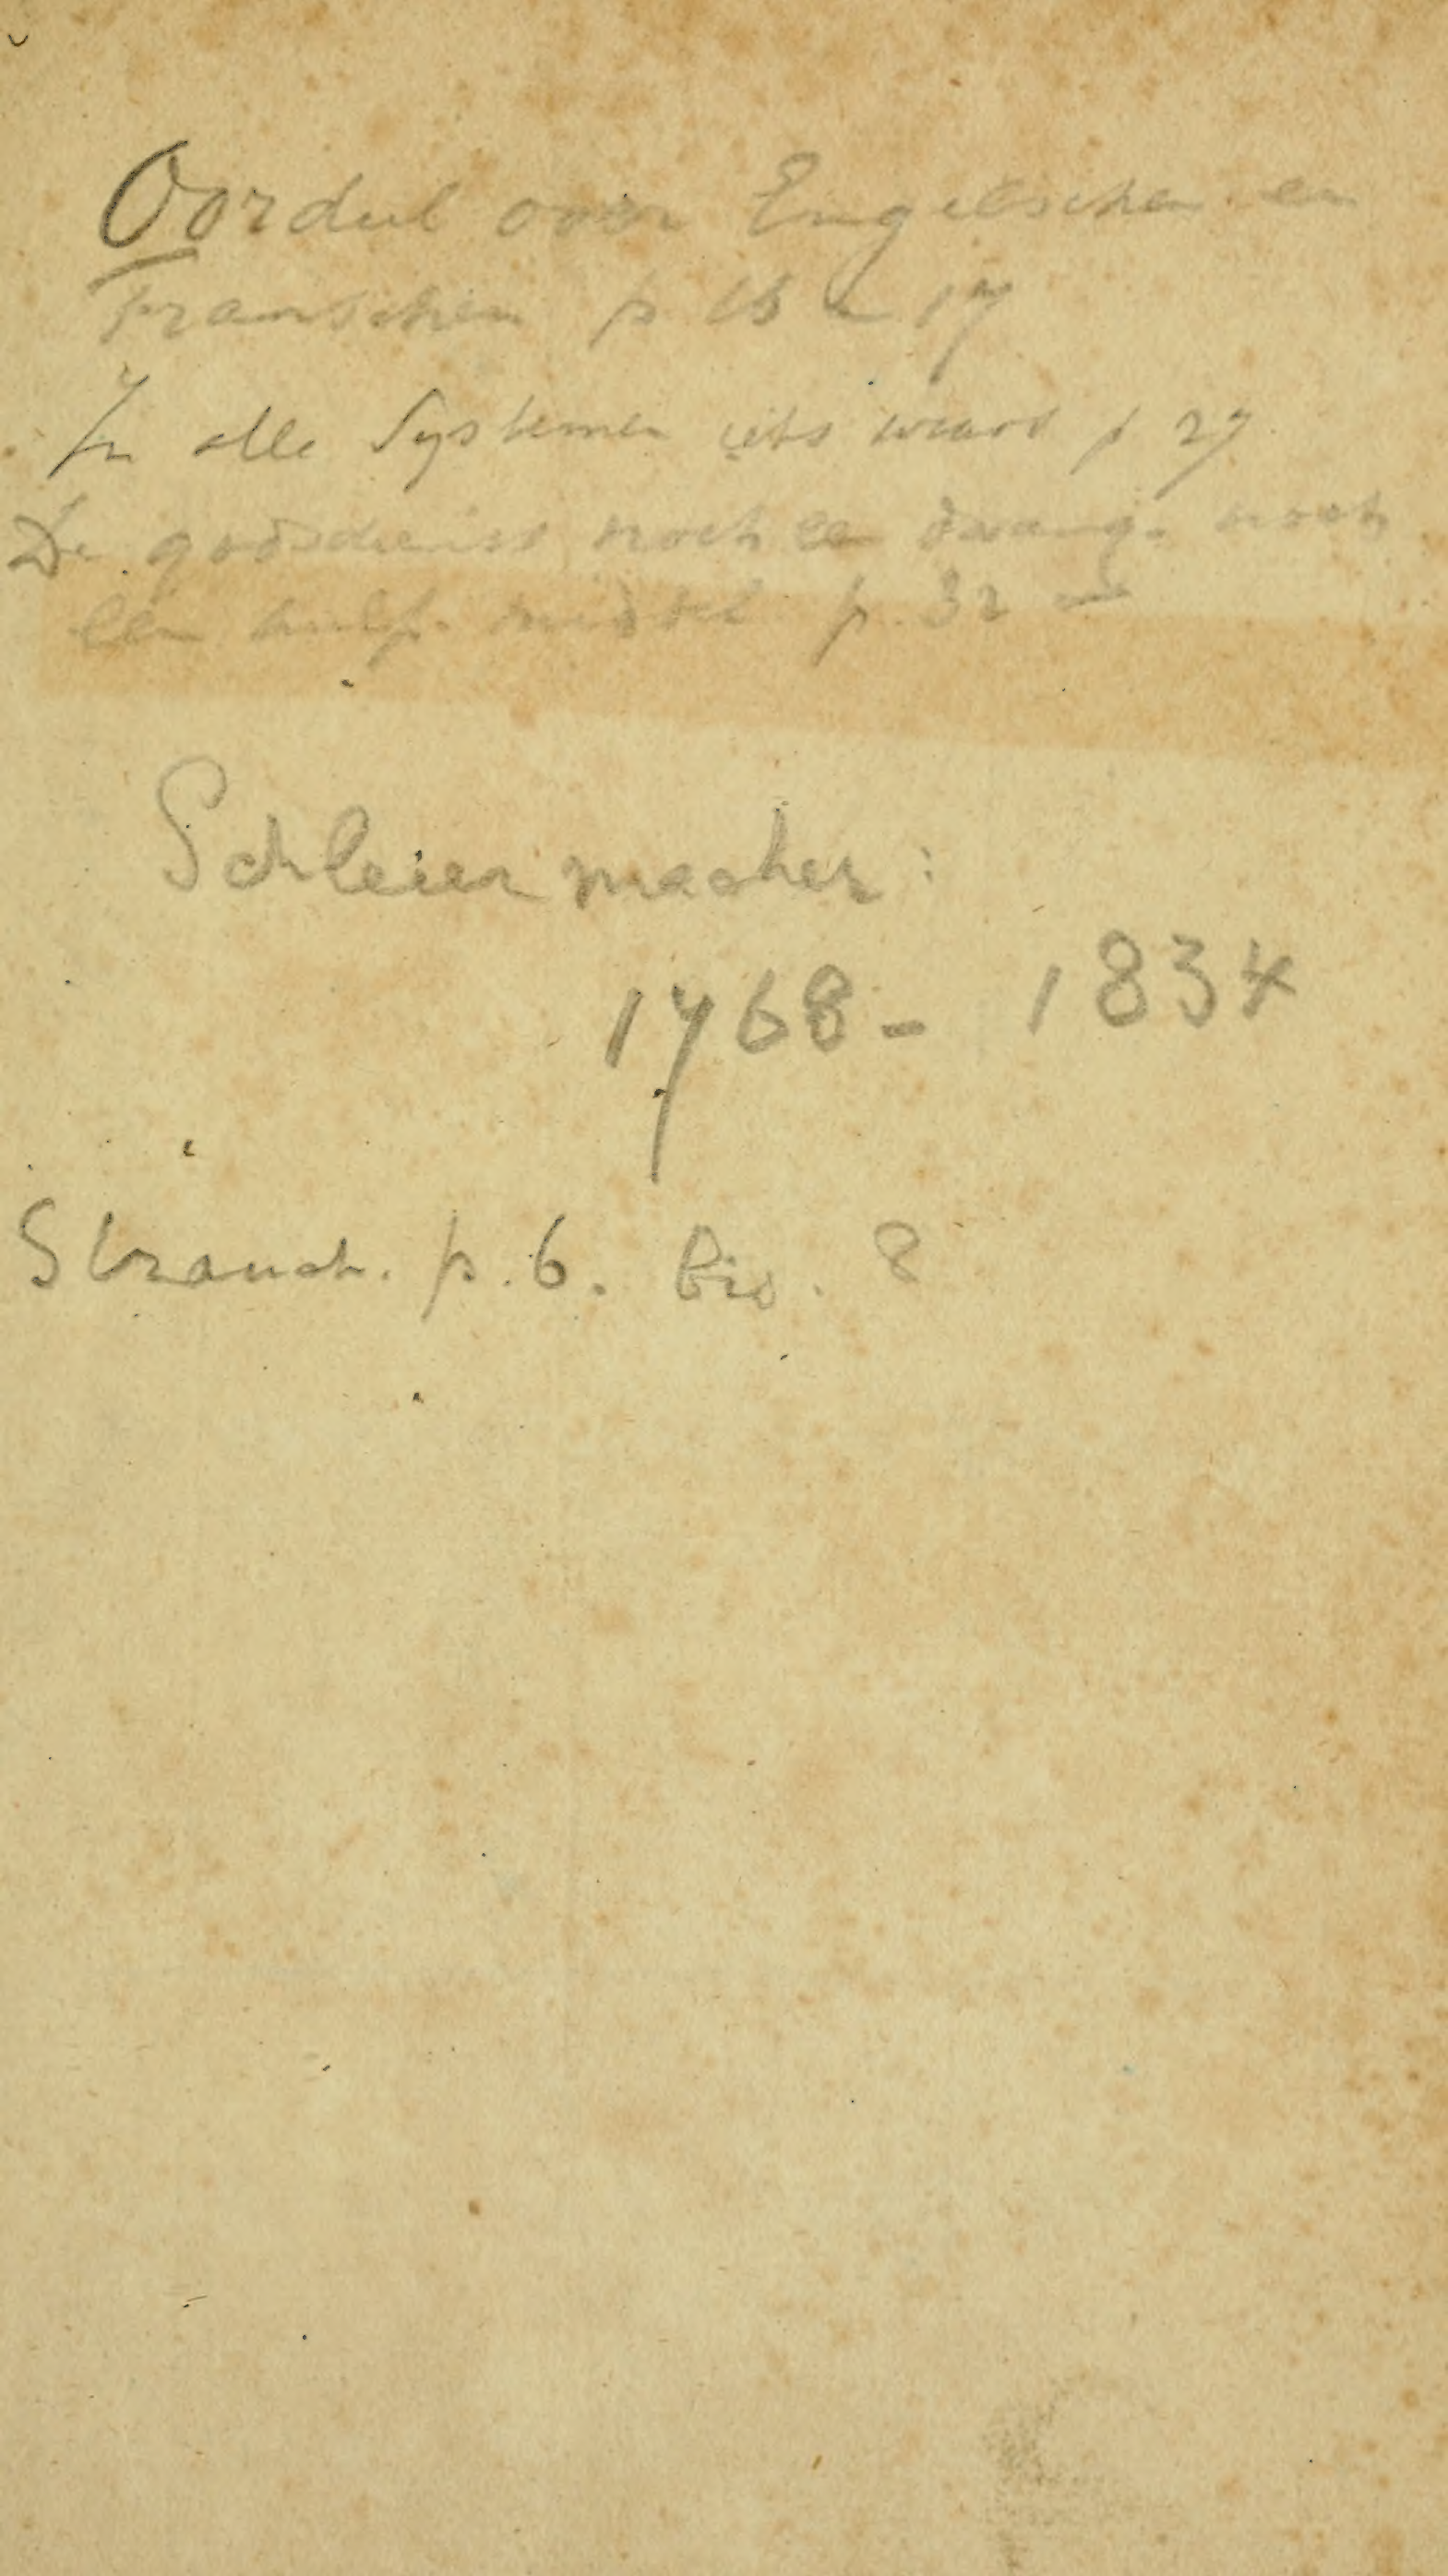 Oordeel over Engelschen en
Franschen p 16 en 17
In alle Systemen iets waars p 27
De godsdienst noch een dwang- noch
een hulp-middel p. 32
Schleiermacher:
1768 - 1834
p. 6. 8